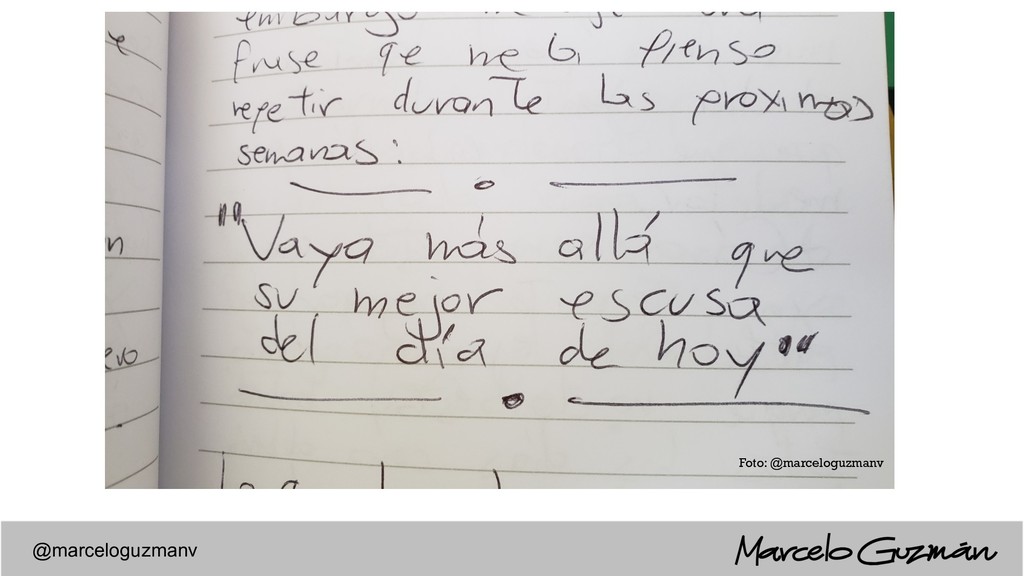 frase que me la pienso
repetir durante las proximas
semanas:
"Vaya más allá que
su mejor escusa
del día de hoy"
Foto: @marceloguzmanv
@marceloguzmanv
Marcelo Guzmán